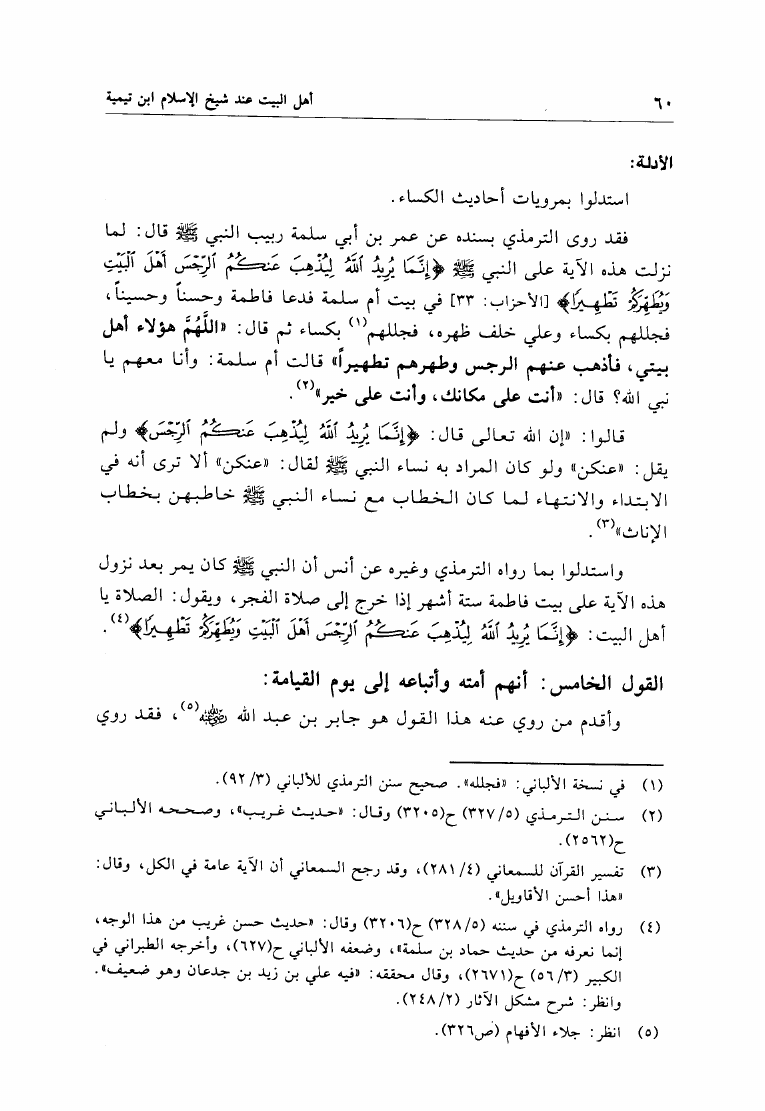 ٦٠ أهل البيت عند شيخ الإسلام ابن تيمية
الأدلة:
استدلوا بمرويات أحاديث الكساء.
فقد روى الترمذي بسنده عن عمر بن أبي سلمة ربيب النبي ﷺ قال: لما
نزلت هذه الآية على النبي ﷺ ﴿إِنَّمَا يُرِيدُ ٱللَّهُ لِيُذْهِبَ عَنكُمُ ٱلرِّجْسَ أَهْلَ ٱلْبَيْتِ
وَيُطَهِّرَكُمْ تَطْهِيرًا﴾ [الأحزاب: ٣٣] في بيت أم سلمة فدعا فاطمة وحسناً وحسيناً،
فجللهم بكساء وعلي خلف ظهره، فجللهم(١) بكساء ثم قال: «اللَّهُمَّ هؤلاء أهل
بيتي، فأذهب عنهم الرجس وطهرهم تطهيراً» قالت أم سلمة: وأنا معهم يا
نبي الله؟ قال: «أنت على مكانك، وأنت على خير»(٢).
قالوا: «إن الله تعالى قال: ﴿إِنَّمَا يُرِيدُ ٱللَّهُ لِيُذْهِبَ عَنكُمُ ٱلرِّجْسَ﴾ ولم
يقل: «عنكن» ولو كان المراد به نساء النبي ﷺ لقال: «عنكن» ألا ترى أنه في
الابتداء والانتهاء لما كان الخطاب مع نساء النبي ﷺ خاطبهن بخطاب
الإناث»(٣).
واستدلوا بما رواه الترمذي وغيره عن أنس أن النبي ﷺ كان يمر بعد نزول
هذه الآية على بيت فاطمة ستة أشهر إذا خرج إلى صلاة الفجر، ويقول: الصلاة يا
أهل البيت: ﴿إِنَّمَا يُرِيدُ ٱللَّهُ لِيُذْهِبَ عَنكُمُ ٱلرِّجْسَ أَهْلَ ٱلْبَيْتِ وَيُطَهِّرَكُمْ تَطْهِيرًا﴾(٤).
القول الخامس: أنهم أمته وأتباعه إلى يوم القيامة:
وأقدم من روي عنه هذا القول هو جابر بن عبد الله رضي الله عنه(٥)، فقد روي
(١) في نسخة الألباني: «فجلله». صحيح سنن الترمذي للألباني (٩٢/٣).
(٢) سنن الترمذي (٣٢٧/٥) ح(٣٢٠٥) وقال: «حديث غريب»، وصححه الألباني
ح(٢٥٦٢).
(٣) تفسير القرآن للسمعاني (٢٨١/٤)، وقد رجح السمعاني أن الآية عامة في الكل، وقال:
«هذا أحسن الأقاويل».
(٤) رواه الترمذي في سننه (٣٢٨/٥) ح(٣٢٠٦) وقال: «حديث حسن غريب من هذا الوجه،
إنما نعرفه من حديث حماد بن سلمة»، وضعفه الألباني ح(٦٢٧)، وأخرجه الطبراني في
الكبير (٥٦/٣) ح(٢٦٧١)، وقال محققه: «فيه علي بن زيد بن جدعان وهو ضعيف».
وانظر: شرح مشكل الآثار (٢٤٨/٢).
(٥) انظر: جلاء الأفهام (ص٣٢٦).